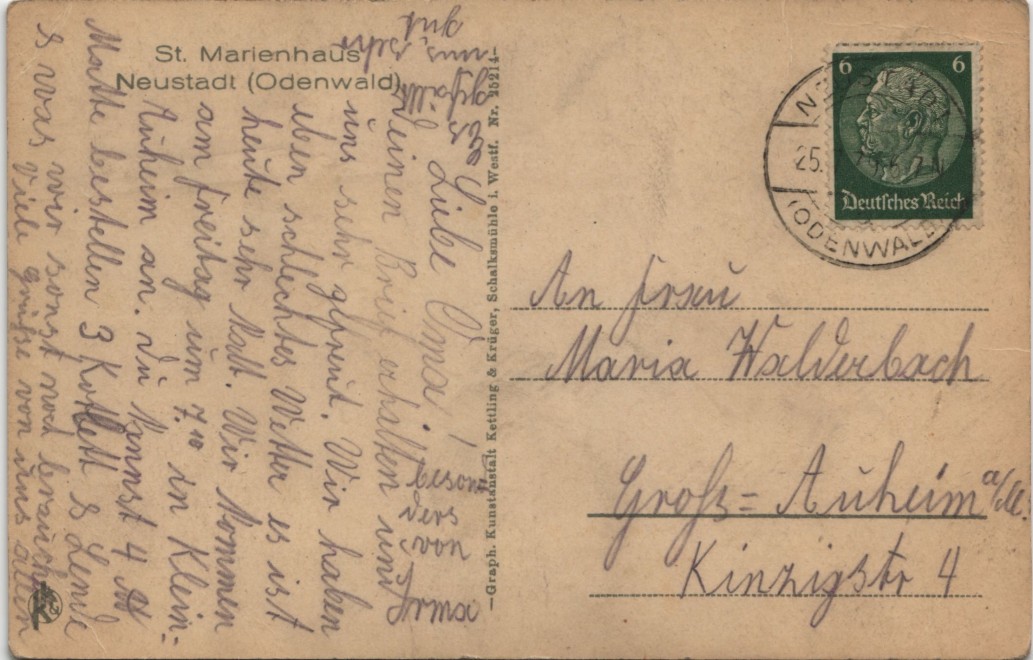 St. Marienhaus
Neustadt (Odenwald)
Es
gefällt
uns sehr
gut
Liebe Oma!
Deinen Brief erhalten und
uns sehr gefreut. Wir haben
eben schlechtes Wetter es ist
heute sehr kalt. Wir kommen
am Freitag um 7.10 in Klein-
Auheim an. Du kannst 4
bestellen 3 Kotlett & Lende
& was wir sonst noch brauchen
Viele Grüße von uns allen
beson-
ders
von
Irma
—Graph. Kunstanstalt Kettling & Krüger, Schalksmühle i. Westf. Nr. 25214—
6 6
Deutsches Reich
NEUSTADT
25.
(ODENWALD)
An Frau
Maria Walderbach
Groß-Auheim a/M.
Kinzigstr 4